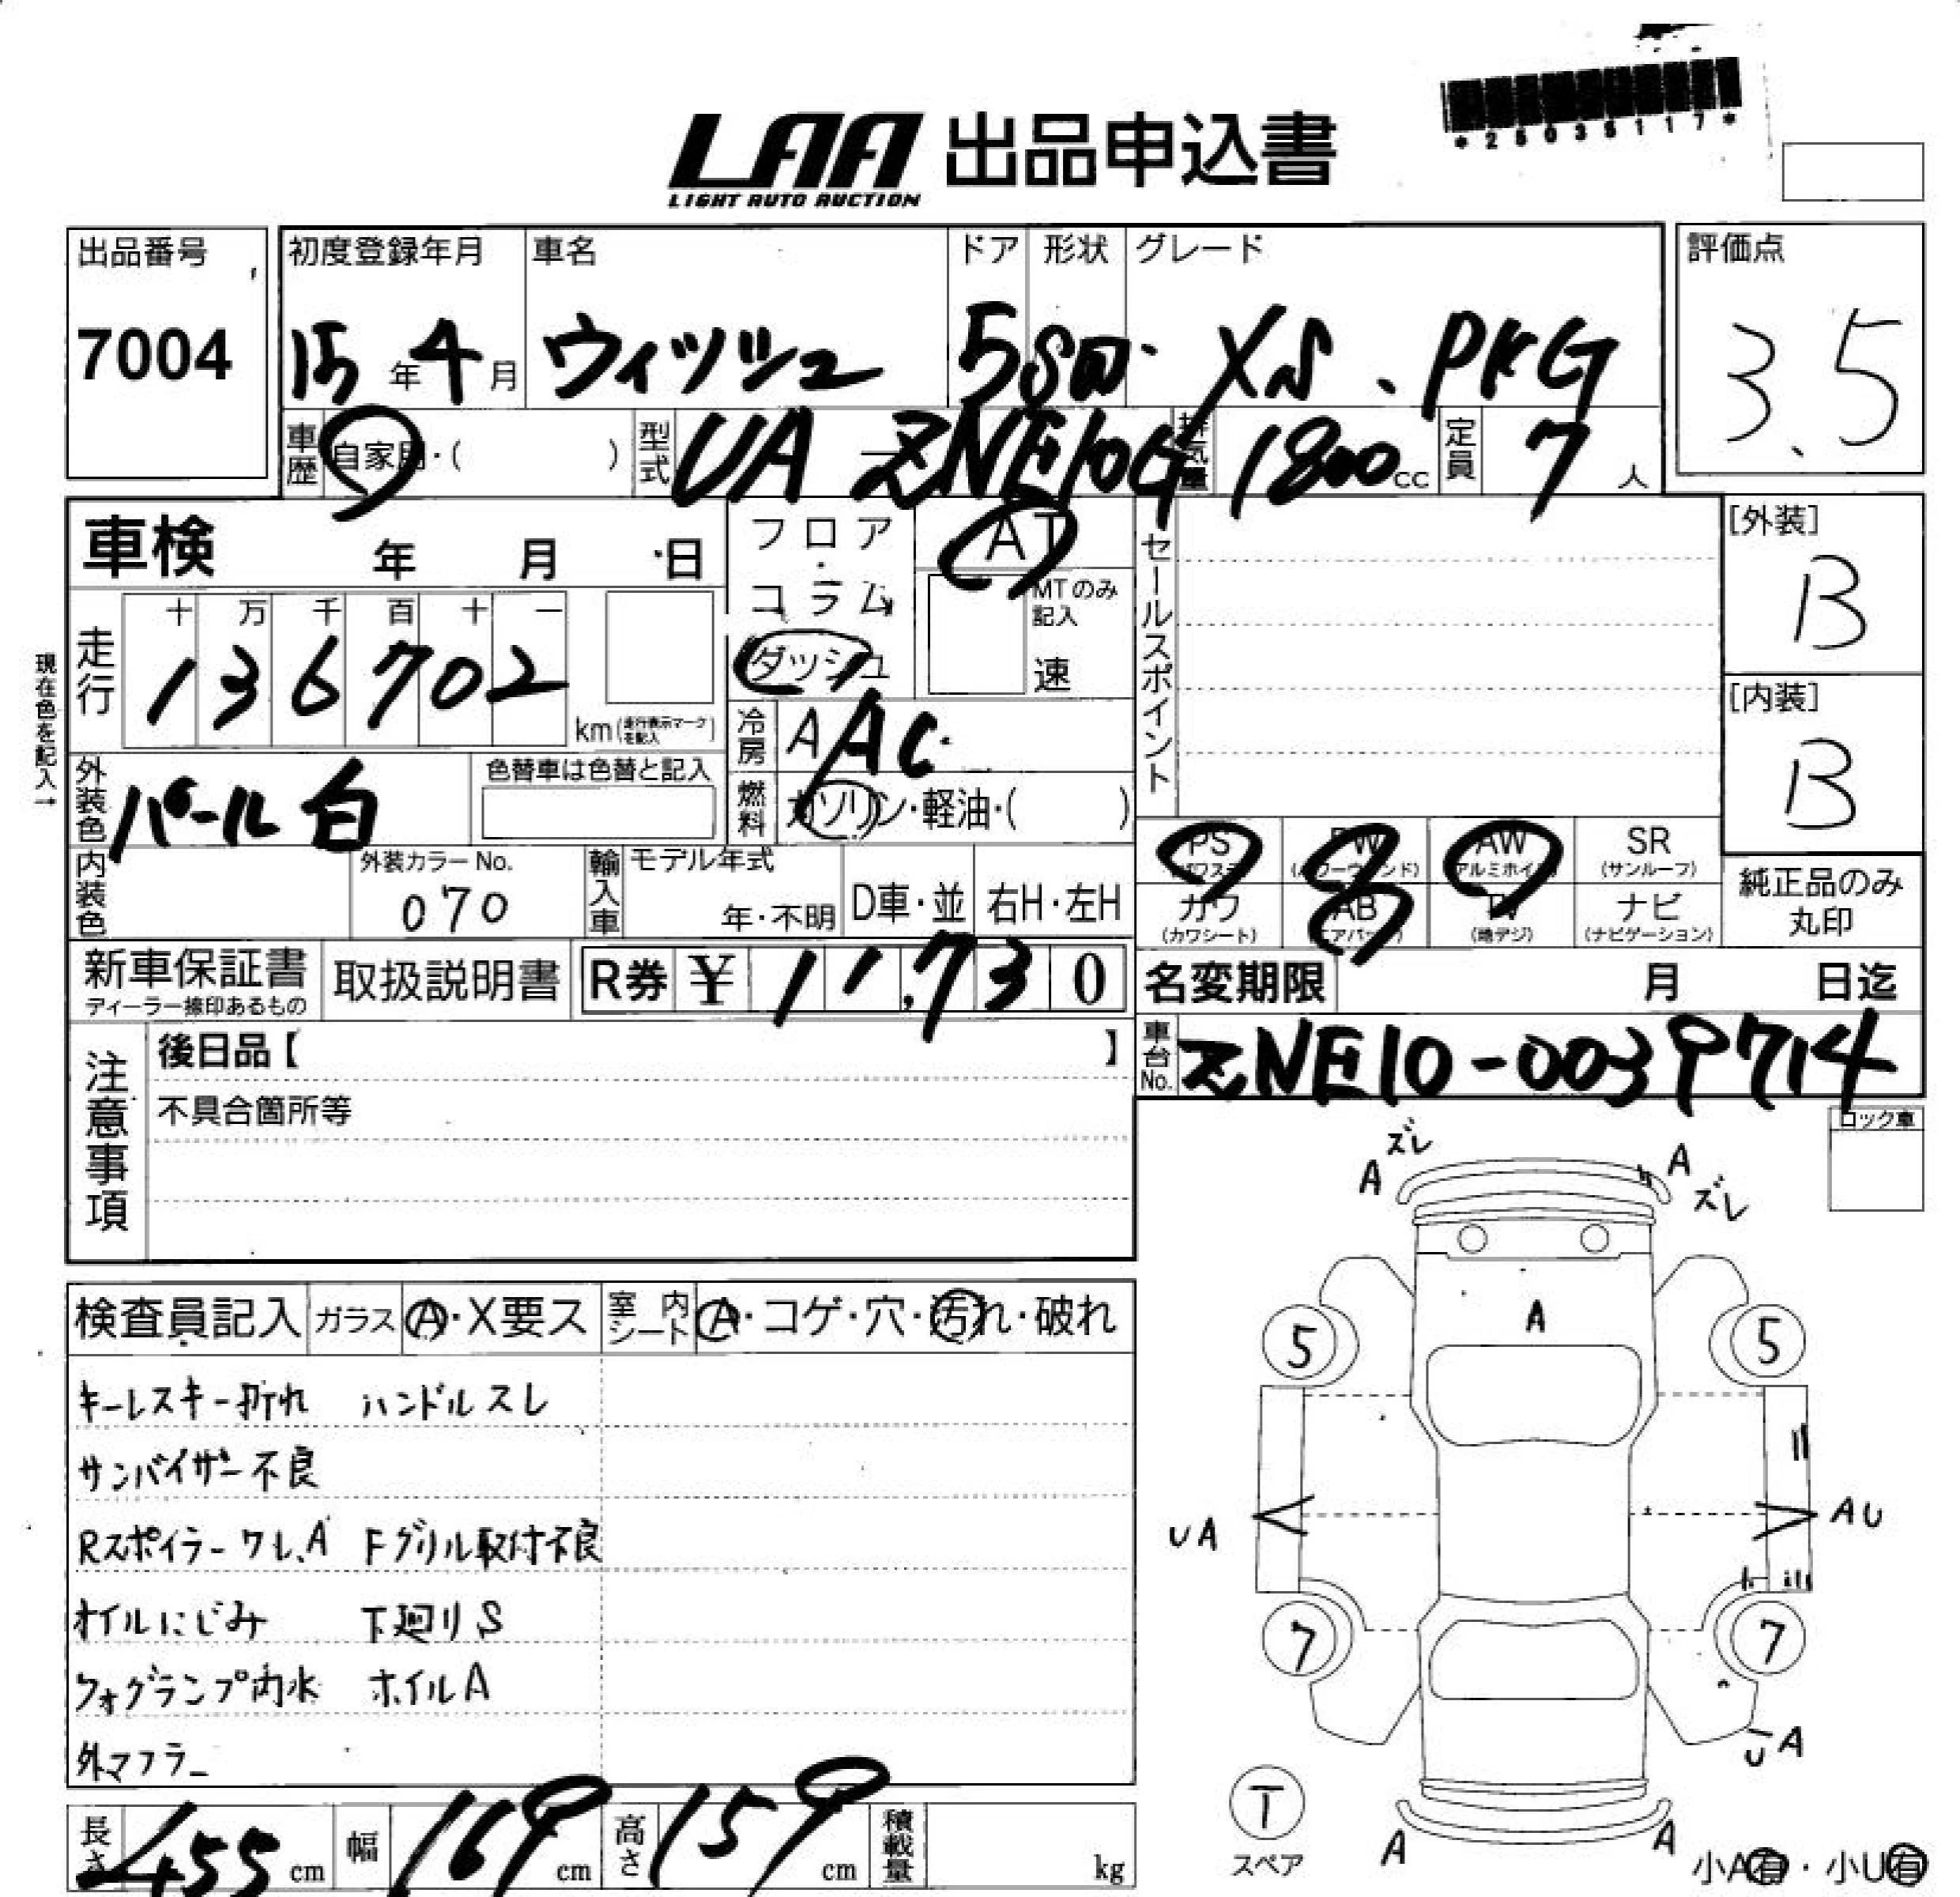 *25035117*
LAA 出品申込書
LIGHT AUTO AUCTION
出品番号 初度登録年月 車名 ドア 形状 グレード 評価点
7004 15年4月 ウィッシュ 5 SW XS.PKG 3.5
車歴 自家用・( ) 型式 UA-ZNE10G 排気量 1800cc 定員 7人
車検 年 月 日
フロア・コラム ダッシュ
AT
MTのみ記入
速
セールスポイント
[外装]
B
[内装]
B
現在色を記入→
走行 十 万 千 百 十 一
136702
km(走行表示マークを記入)
冷房 A AC
外装色 パール白 色替車は色替と記入
燃料 ガソリン・軽油・( )
PS PW AW SR
(パワステ) (パワーウィンド) (アルミホイル) (サンルーフ)
カワ AB TV ナビ
(カワシート) (エアバッグ) (地デジ) (ナビゲーション)
純正品のみ
丸印
内装色 外装カラーNo. 070 輸入車 モデル年式 年・不明 D車・並 右H・左H
新車保証書 取扱説明書 R券 ¥ 11,730
ディーラー捺印あるもの
名変期限 月 日迄
車台No. ZNE10-0039714
注意事項
後日品【 】
不具合箇所等
ロック車
検査員記入 ガラス A・X要ス 室内シート A・コゲ・穴・汚れ・破れ
キーレスキー折れ ハンドルスレ
サンバイザー不良
Rスポイラーワレ、A Fグリル取付不良
オイルにじみ 下廻りS
フォグランプ内水 ホイルA
外マフラー
長さ 455cm 幅 169cm 高さ 159cm 積載量 kg
ズレ
A A
ズレ
A
5 5
UA AU
7 7
UA
T
スペア
A A
小A有・小U有